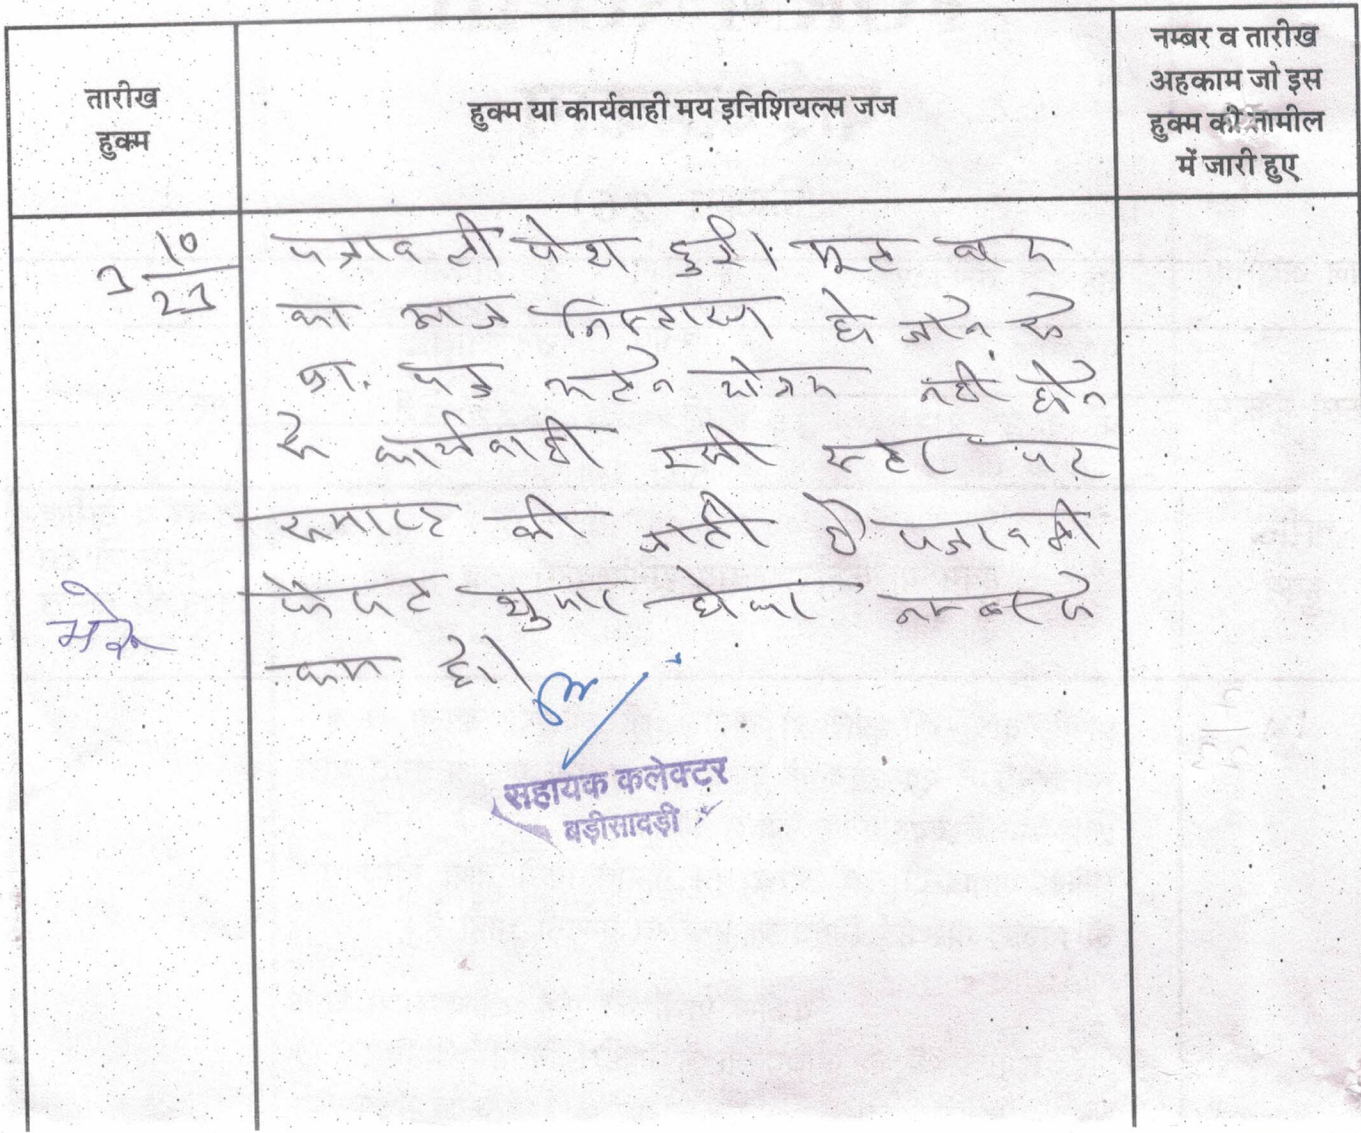 तारीख
हुक्म
हुक्म या कार्यवाही मय इनिशियल्स जज
नम्बर व तारीख
अहकाम जो इस
हुक्म की तामील
में जारी हुए
3 10/23
पत्रावली पेश हुई। मूल वाद
का आज निस्तारण हो जाने से
प्रा. पत्र चलने योग्य नहीं होने
से कार्यवाही इसी स्तर पर
समाप्त की जाती है पत्रावली
फैसल शुमार होकर नम्बर से
कम हो।
सहायक कलेक्टर
बड़ीसादड़ी